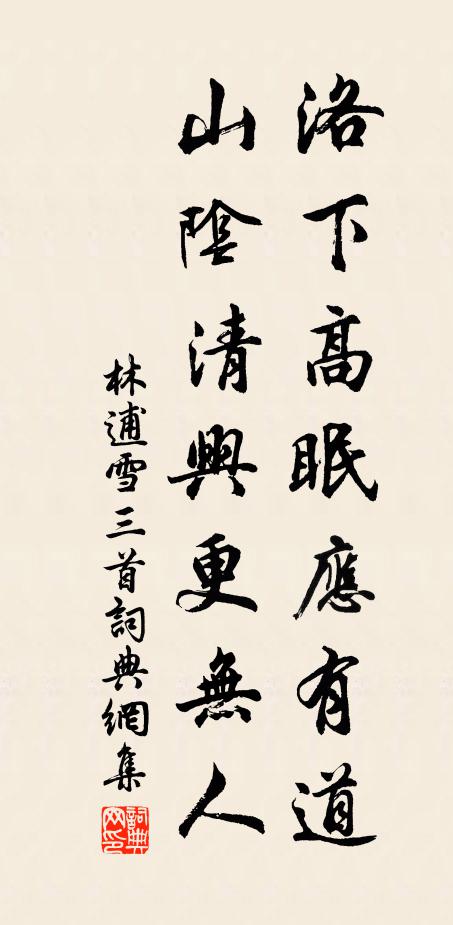 洛下高眠應有道
山陰清興更無人
林逋雪三首詞典網集
詞典網印